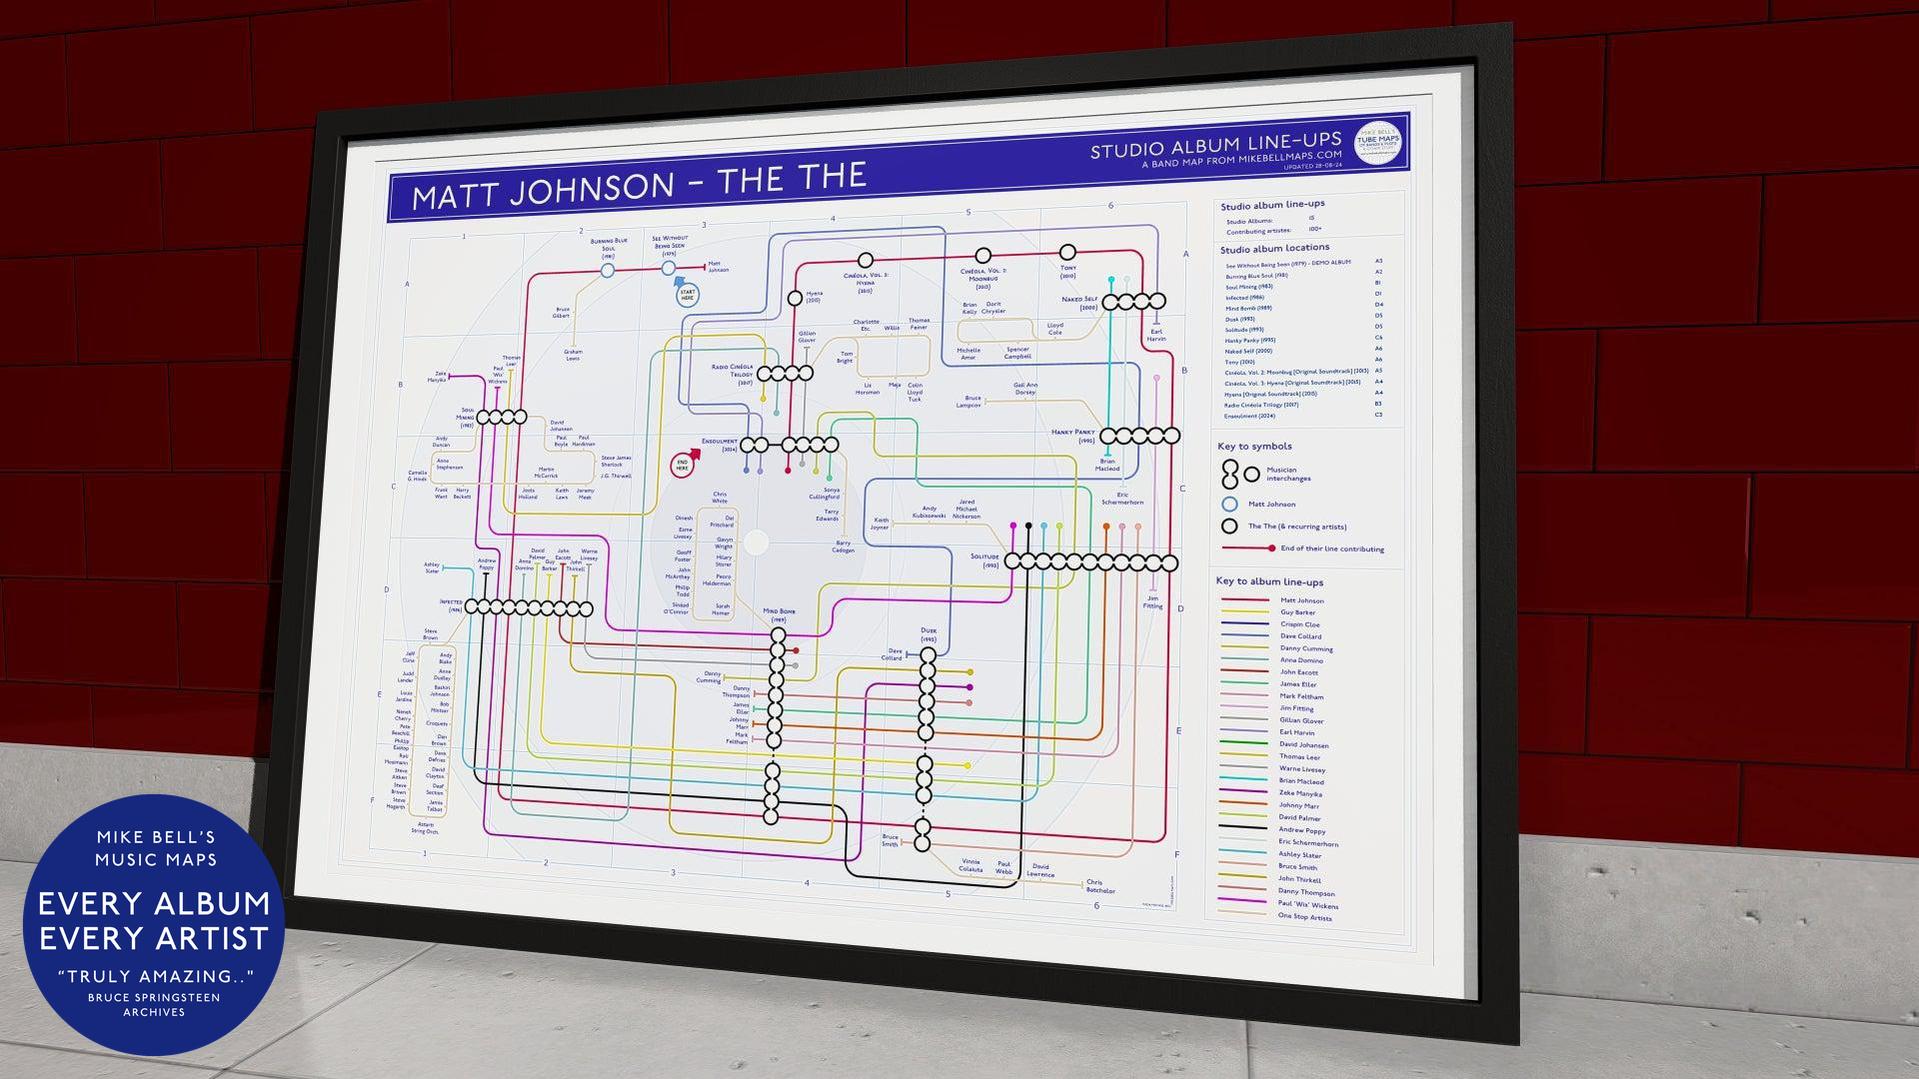 MATT JOHNSON - THE THE
STUDIO ALBUM LINE-UPS
A BAND MAP FROM MIKEBELLMAPS.COM
UPDATED 28-08-24
MIKE BELL'S
TUBE MAPS
1
2
3
4
5
6
A
B
C
D
E
F
BURNING BLUE
SOUL
(1981)
SEE WITHOUT
BEING SEEN
(1979)
Matt
Johnson
START
HERE
Bruce
Gilbert
Graham
Lewis
CINÉOLA, VOL. 3:
HYENA
(2015)
CINÉOLA, VOL. 2:
MOONBUG
(2013)
TONY
(2010)
Hyena
(2015)
NAKED SELF
(2000)
Earl
Harvin
Brian
Kelly
Dorit
Chrysler
Lloyd
Cole
Michelle
Amar
Spencer
Campbell
Gillian
Glover
Charlotte
Etc.
Willie
Thomas
Feiner
Tom
Bright
Liz
Horsman
Meja
Colin
Lloyd
Tuck
RADIO CINÉOLA
TRILOGY
(2017)
Gail Ann
Dorsey
Bruce
Lampcov
HANKY PANKY
(1995)
Brian
Macleod
Eric
Schermerhorn
Zeke
Manyika
Paul
'Wix'
Wickens
Thomas
Leer
SOUL
MINING
(1983)
David
Johansen
Paul
Boyle
Paul
Hardiman
Andy
Duncan
Anne
Stephenson
Camelle
G. Hinds
Frank
Want
Harry
Beckett
Martin
McCarrick
Steve James
Sherlock
J.G. Thirlwell
Jools
Holland
Keith
Laws
Jeremy
Meek
ENSOULMENT
(2024)
END
HERE
Sonya
Cullingford
Terry
Edwards
Barry
Cadogan
Chris
White
Dinesh
Dai
Pritchard
Esme
Livesey
Gavyn
Wright
Geoff
Foster
Hilary
Storer
John
McArthey
Pedro
Haldeman
Philip
Todd
Sinéad
O'Connor
Sarah
Homer
Keith
Joyner
Andy
Kubiszewski
Jared
Michael
Nickerson
SOLITUDE
(1993)
Jim
Fitting
Ashley
Slater
Andrew
Poppy
Anna
Domino
David
Palmer
Guy
Barker
John
Eacott
John
Thirkell
Warne
Livesey
INFECTED
(1986)
MIND BOMB
(1989)
DUSK
(1993)
Dave
Collard
Danny
Cumming
Danny
Thompson
James
Eller
Johnny
Marr
Mark
Feltham
Steve
Brown
Andy
Blake
Anne
Dudley
Bashiri
Johnson
Croquets
Dan
Brown
Dave
Defries
David
Clayton
Deaf
Section
Jamie
Talbot
Judd
Lander
Louis
Jardine
Neneh
Cherry
Pete
Beachill
Philip
Eastop
Steve
Aitken
Steve
Brown
Steve
Hogarth
Astarti
String Orch.
Bruce
Smith
Vinnie
Colaiuta
Paul
Webb
David
Lawrence
Chris
Batchelor
Studio album line-ups
Studio Albums: 15
Contributing artistes: 100+
Studio album locations
See Without Being Seen (1979) - DEMO ALBUM A3
Burning Blue Soul (1981) A2
Soul Mining (1983) B1
Infected (1986) D1
Mind Bomb (1989) D4
Dusk (1993) D5
Solitude (1993) D5
Hanky Panky (1995) C6
Naked Self (2000) A6
Tony (2010) A6
Cinéola, Vol. 2: Moonbug [Original Soundtrack] (2013) A5
Cinéola, Vol. 3: Hyena [Original Soundtrack] (2015) A4
Hyena [Original Soundtrack] (2015) A4
Radio Cinéola Trilogy (2017) B3
Ensoulment (2024) C3
Key to symbols
Musician
interchanges
Matt Johnson
The The (& recurring artists)
End of their line contributing
Key to album line-ups
Matt Johnson
Guy Barker
Crispin Cloe
Dave Collard
Danny Cumming
Anna Domino
John Eacott
James Eller
Mark Feltham
Jim Fitting
Gillian Glover
Earl Harvin
David Johansen
Thomas Leer
Warne Livesey
Brian Macleod
Zeke Manyika
Johnny Marr
David Palmer
Andrew Poppy
Eric Schermerhorn
Ashley Slater
Bruce Smith
John Thirkell
Danny Thompson
Paul 'Wix' Wickens
One Stop Artists
MIKE BELL'S
MUSIC MAPS
EVERY ALBUM
EVERY ARTIST
"TRULY AMAZING.."
BRUCE SPRINGSTEEN
ARCHIVES